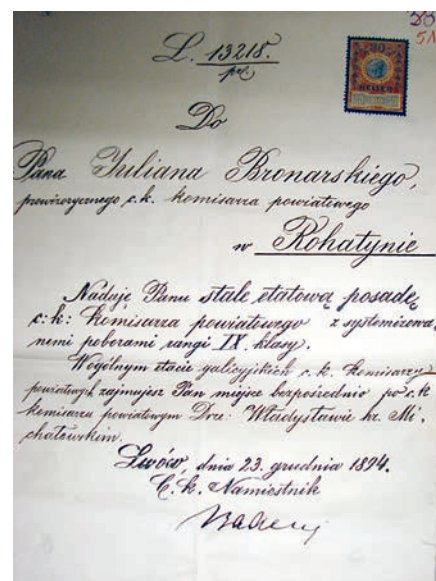 L. 13218.
pr.
Do
Pana Juliana Bronarskiego,
prowizorycznego c. k. komisarza powiatowego
w Rohatynie
Nadaję Panu stale etatową posadę
c: k: komisarza powiatowego z systemizowa,
nemi poborami rangi IX. klasy.
W ogólnym etacie galicyjskich c. k. komisarzy
powiatowych zajmujesz Pan miejsce bezpośrednio po c. k
komisarzu powiatowym Drze: Władysławie hr. Mi,
chałowskim.
Lwów, dnia 23. grudnia 1894.
C. k. Namiestnik
Badeni